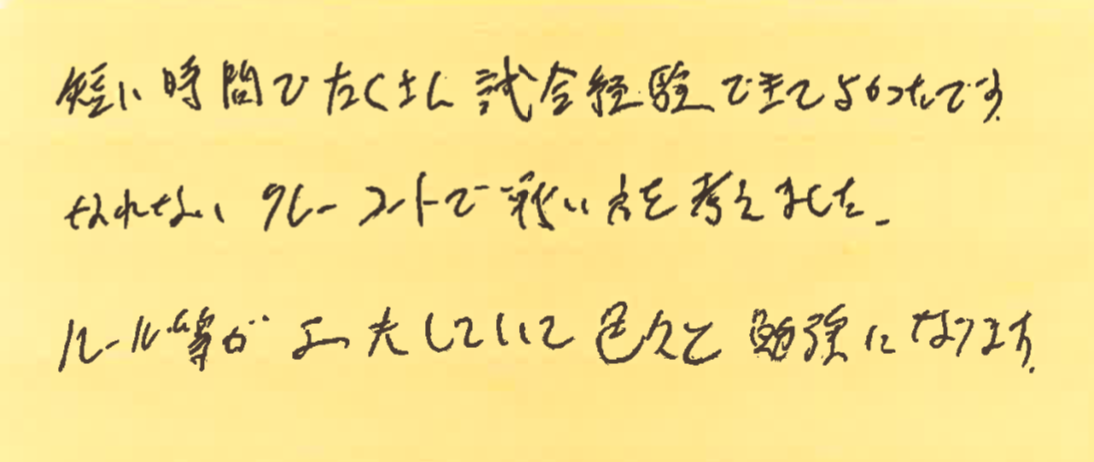 短い時間でたくさん試合経験できてよかったです。
なれない クレーコートで戦い方を考えました。
ルール等が工夫していて色々と勉強になります。